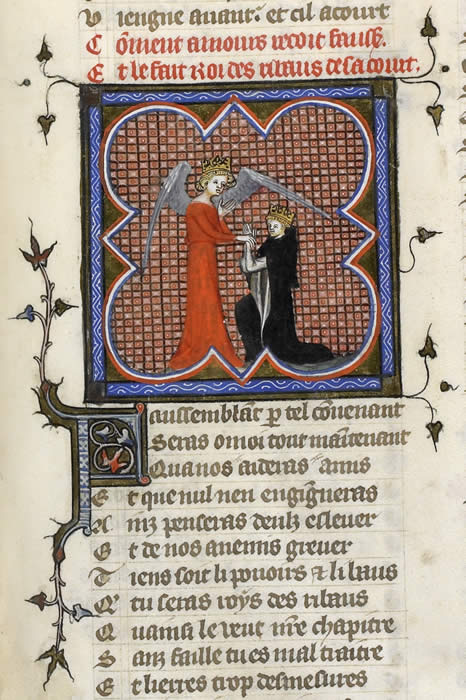 V iengne auant. et cil acourt
C õment amours recoit fauss.
E t le fait Roi des ribaus de sa court.
F aussemblãt p tel cõuenant
Seras o moi tout maintenant
Qua nos aideras amis
E t que nul nen engigneras
A inz penseras deulz esleuer
E t de nos anemis greuer
T iens soit li pouoirs & li baus
Q tu seras roys des ribaus
Q uainsi le veut nr̃e chapitre
S anz faille tu es mal traitre
E t lierres trop desmesures